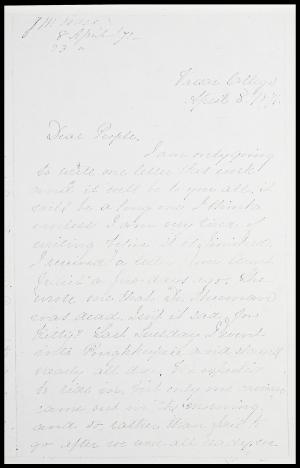 8 April /71
Vassar College
April 8, 1871.
Dear People,
I am only going
to write one letter this week
and it will be to you all, it
will be a long one I think
unless I am very tired of
writing before it is finished.
I received a letter from Aunt
Julia a few days ago. She
wrote me that Dr.
was dead. Isn't it sad, for
Last Tuesday I went
into Po'keepsie and stayed
nearly all day. I expected
to ride in, but only one
came out in the morning,
and so rather than fail to
go after we were all ready, we